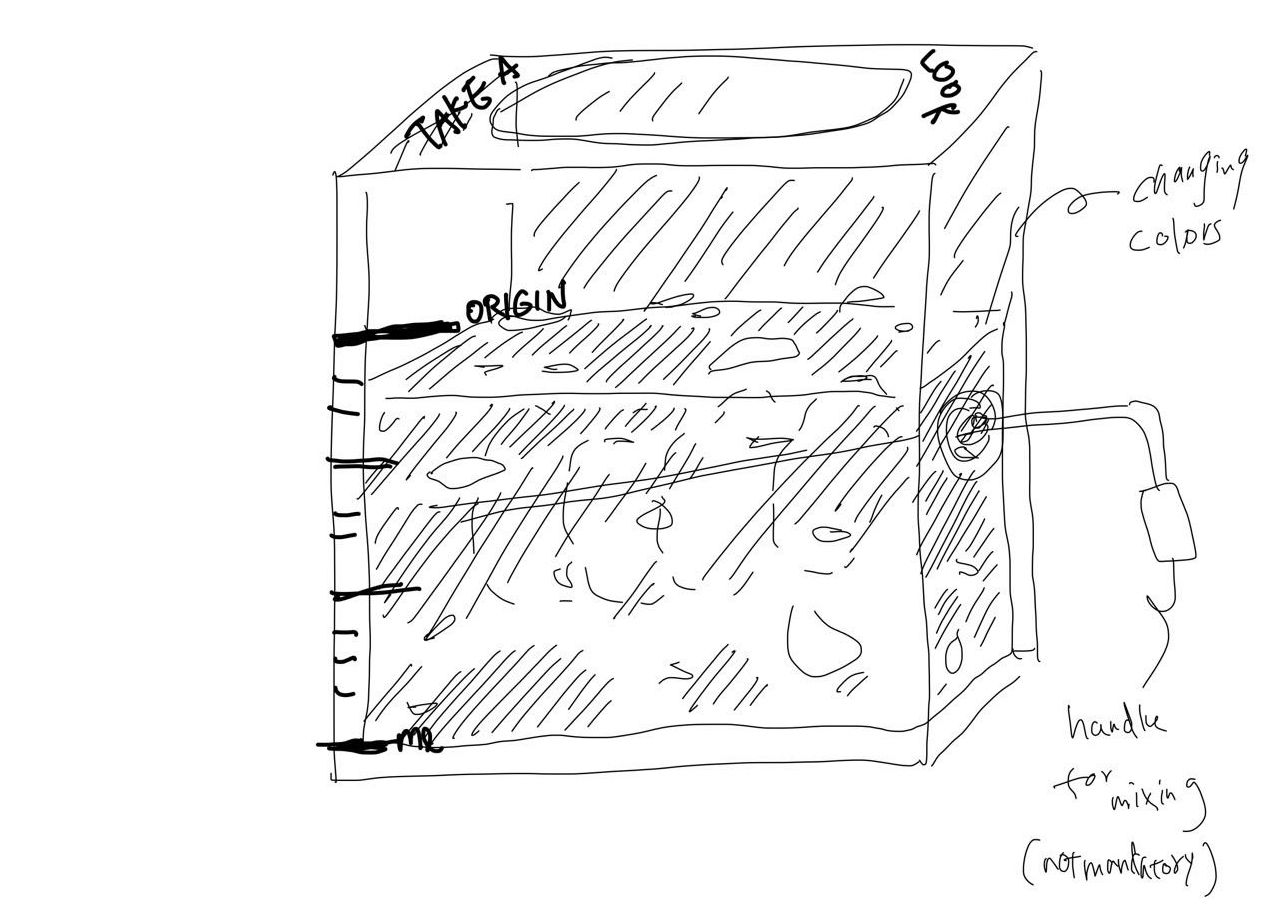 TAKE A
LOOK
changing
colors
ORIGIN
ME
handle
for
mixing
(not mandatory)